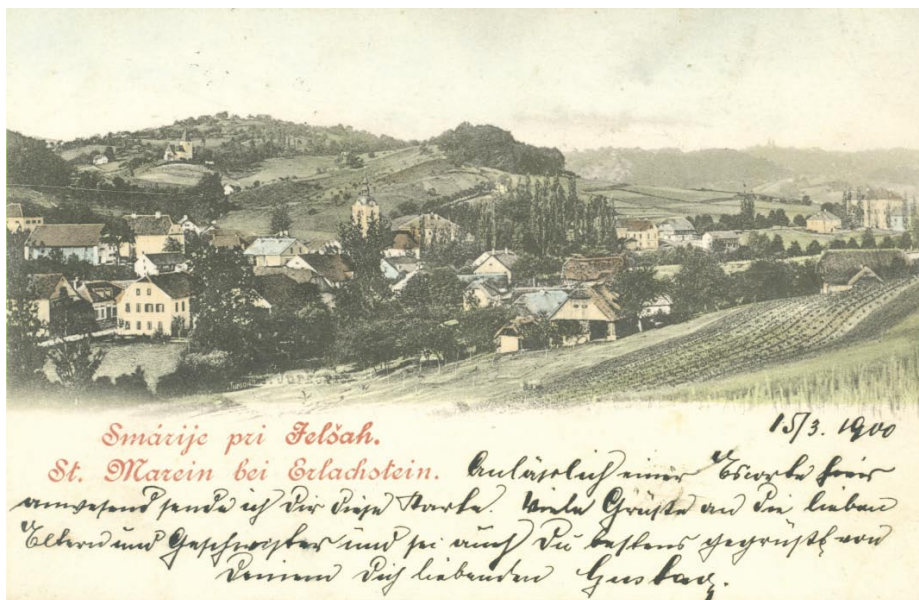 Smárije pri Jelšah.
15/3. 1900
St. Marein bei Erlachstein. Anlässlich einer Escorte hier
anwesend sende ich Dir diese Karte. Viele Grüsse an die lieben
Eltern und Geschwister und sei auch Du bestens gegrüßt von
Deinem Dich liebenden Gustav.